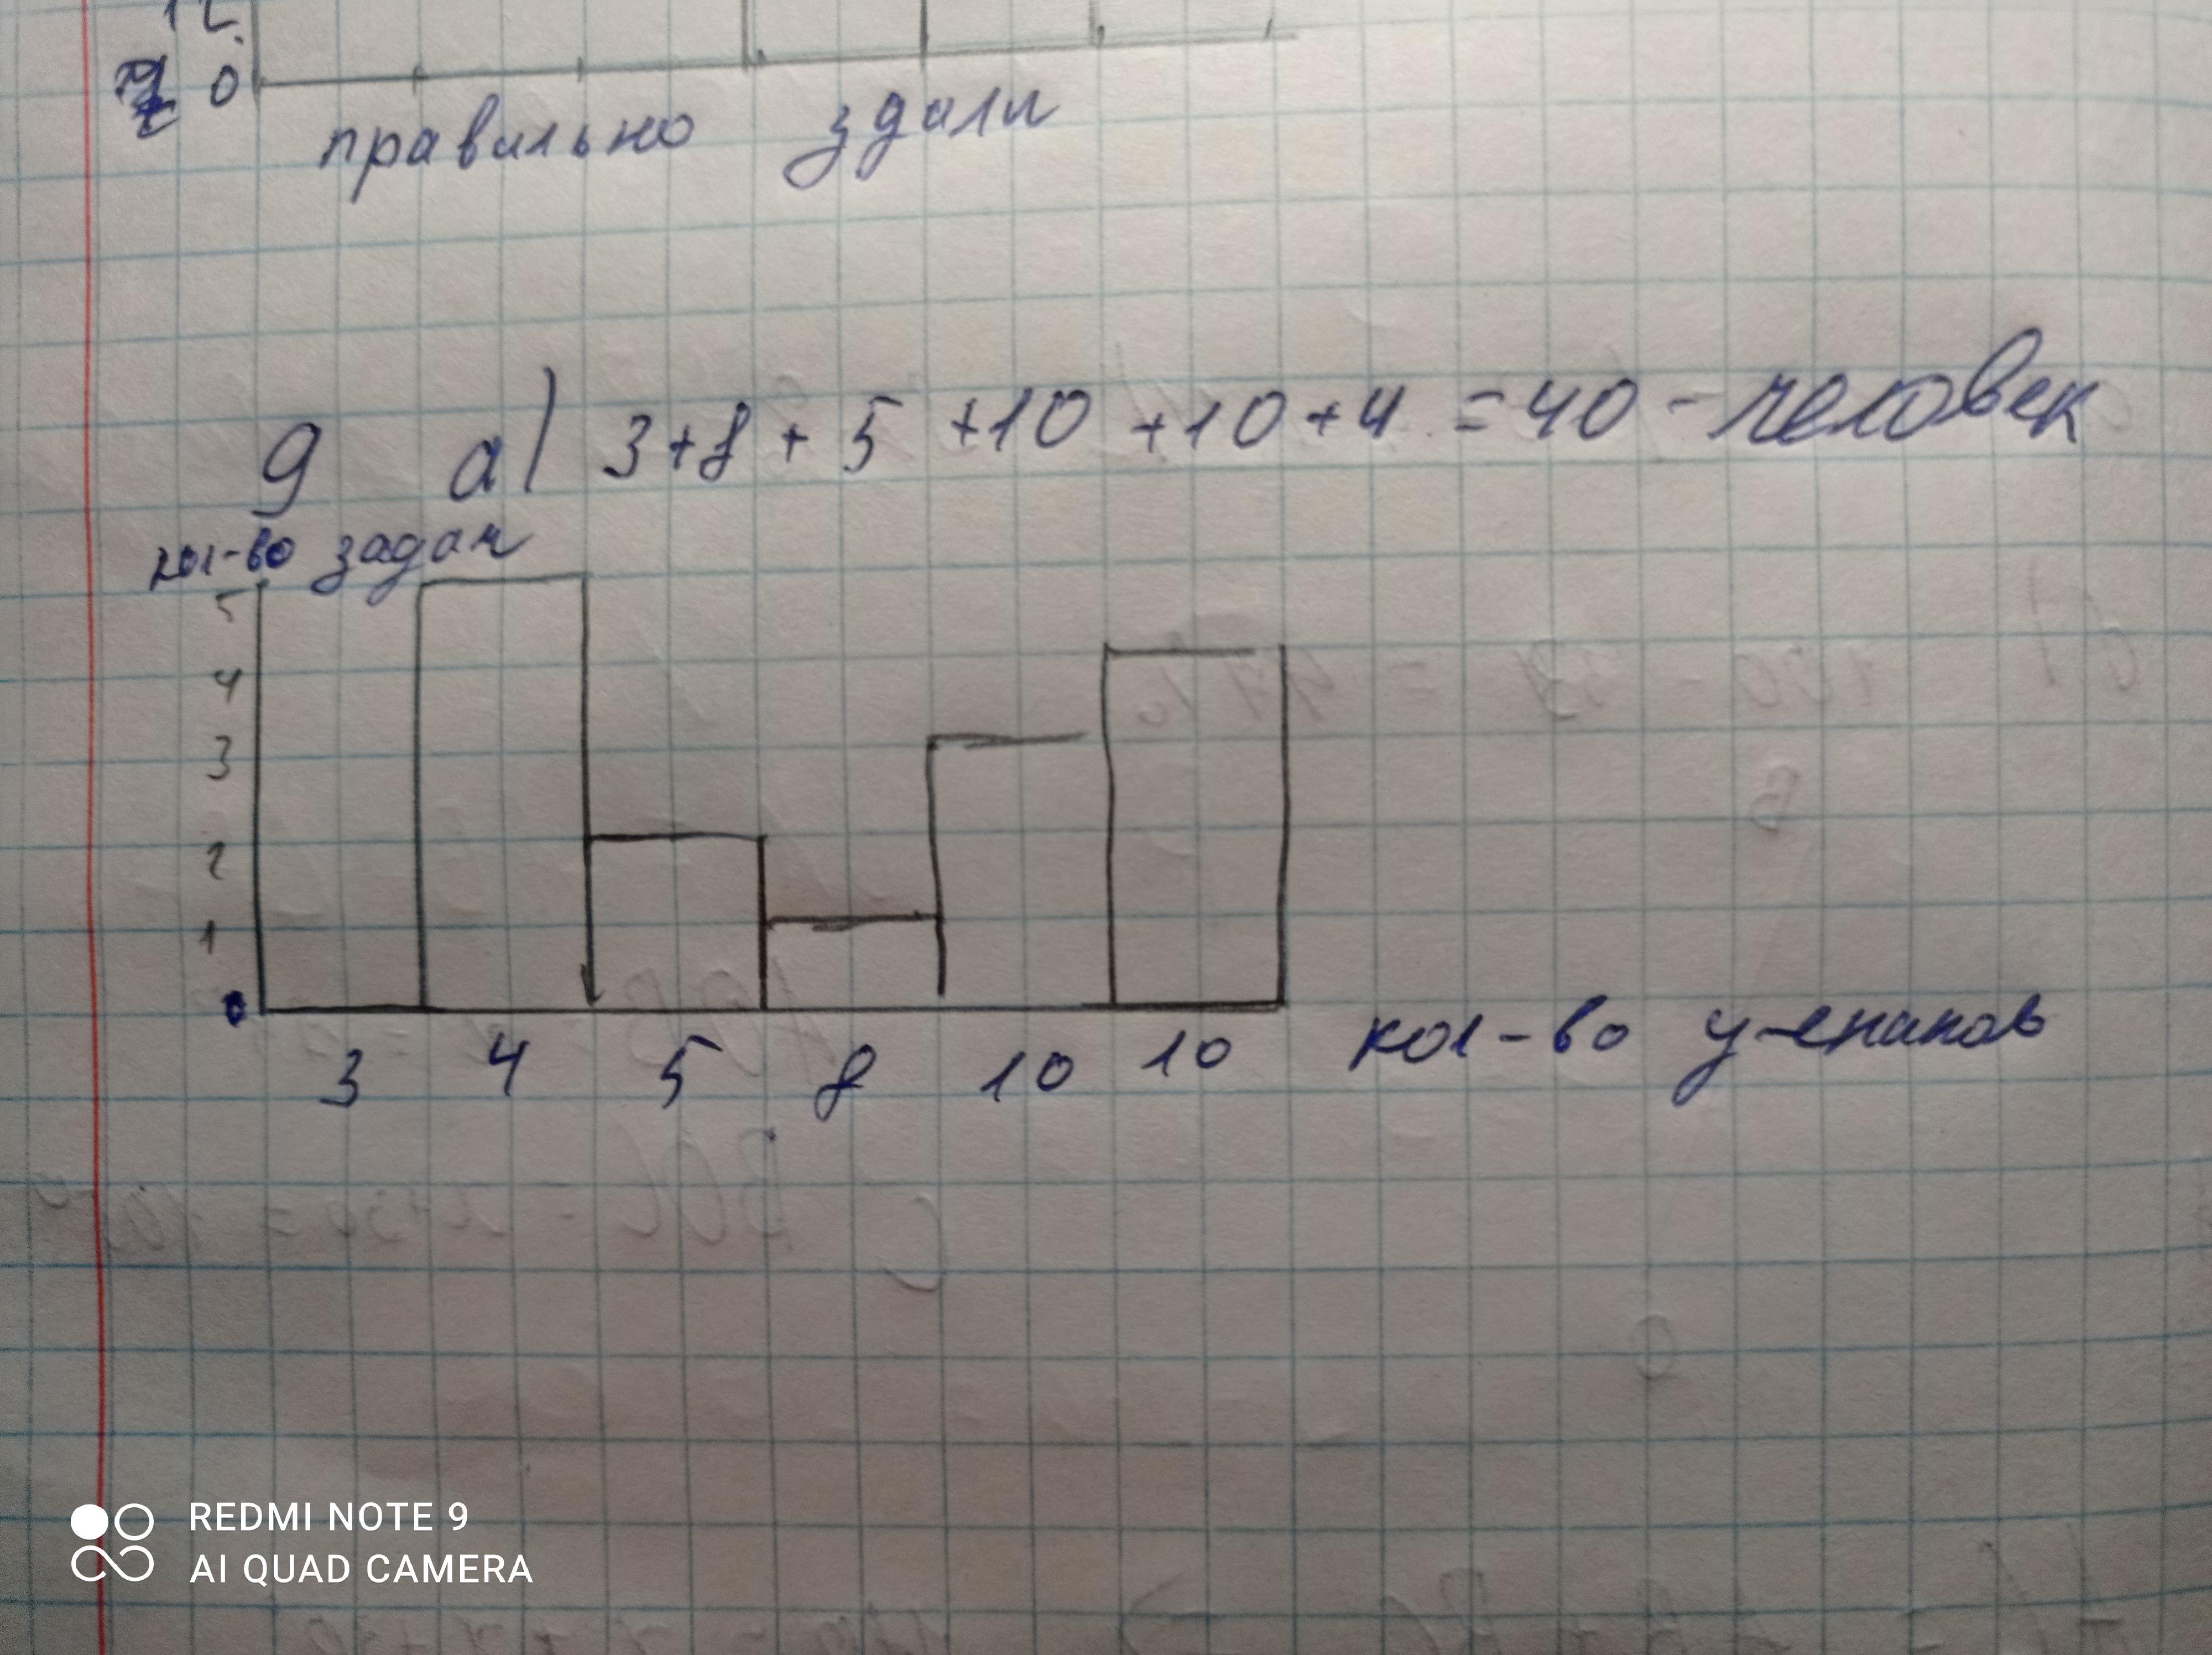 0
правильно здали
9 а) 3+8+5+10+10+4=40-человек
кол-во задач
5
4
3
2
1
0
3 4 5 8 10 10 кол-во учеников
REDMI NOTE 9
AI QUAD CAMERA